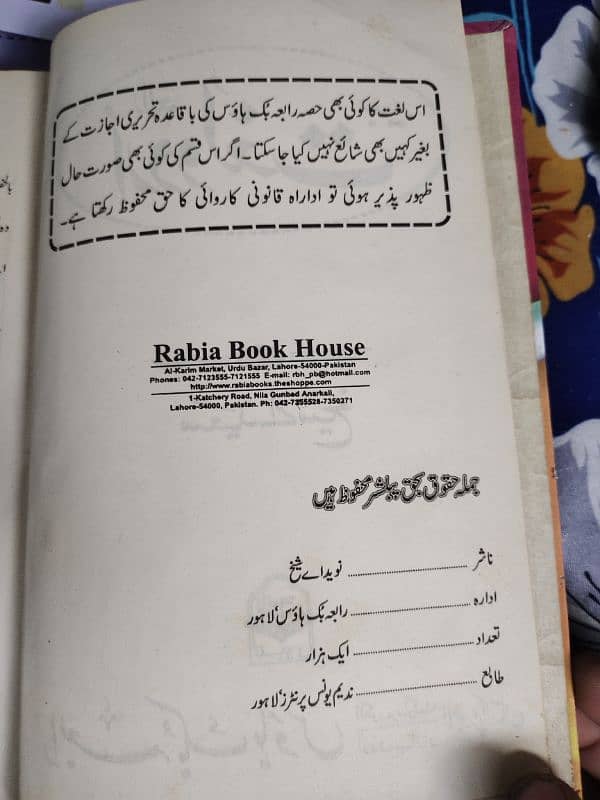 اس لغت کا کوئی بھی حصہ رابعہ بک ہاؤس کی باقاعدہ تحریری اجازت کے
بغیر کہیں بھی شائع نہیں کیا جا سکتا۔ اگر اس قسم کی کوئی بھی صورت حال
ظہور پذیر ہوئی تو اداراہ قانونی کاروائی کا حق محفوظ رکھتا ہے۔
Rabia Book House
Al-Karim Market, Urdu Bazar, Lahore-54000-Pakistan
Phones: 042-7123555-7121555 E-mail: rbh_pb@hotmail.com
http://www.rabiabooks.theshoppe.com
1-Katchery Road, Nila Gunbad Anarkali,
Lahore-54000, Pakistan. Ph: 042-7355528-7350271
جملہ حقوق بحق پبلشر محفوظ ہیں
ناشر ........................ نوید اے شیخ
ادارہ ........................ رابعہ بک ہاؤس، لاہور
تعداد ........................ ایک ہزار
طابع ........................ ندیم یونس پرنٹرز، لاہور